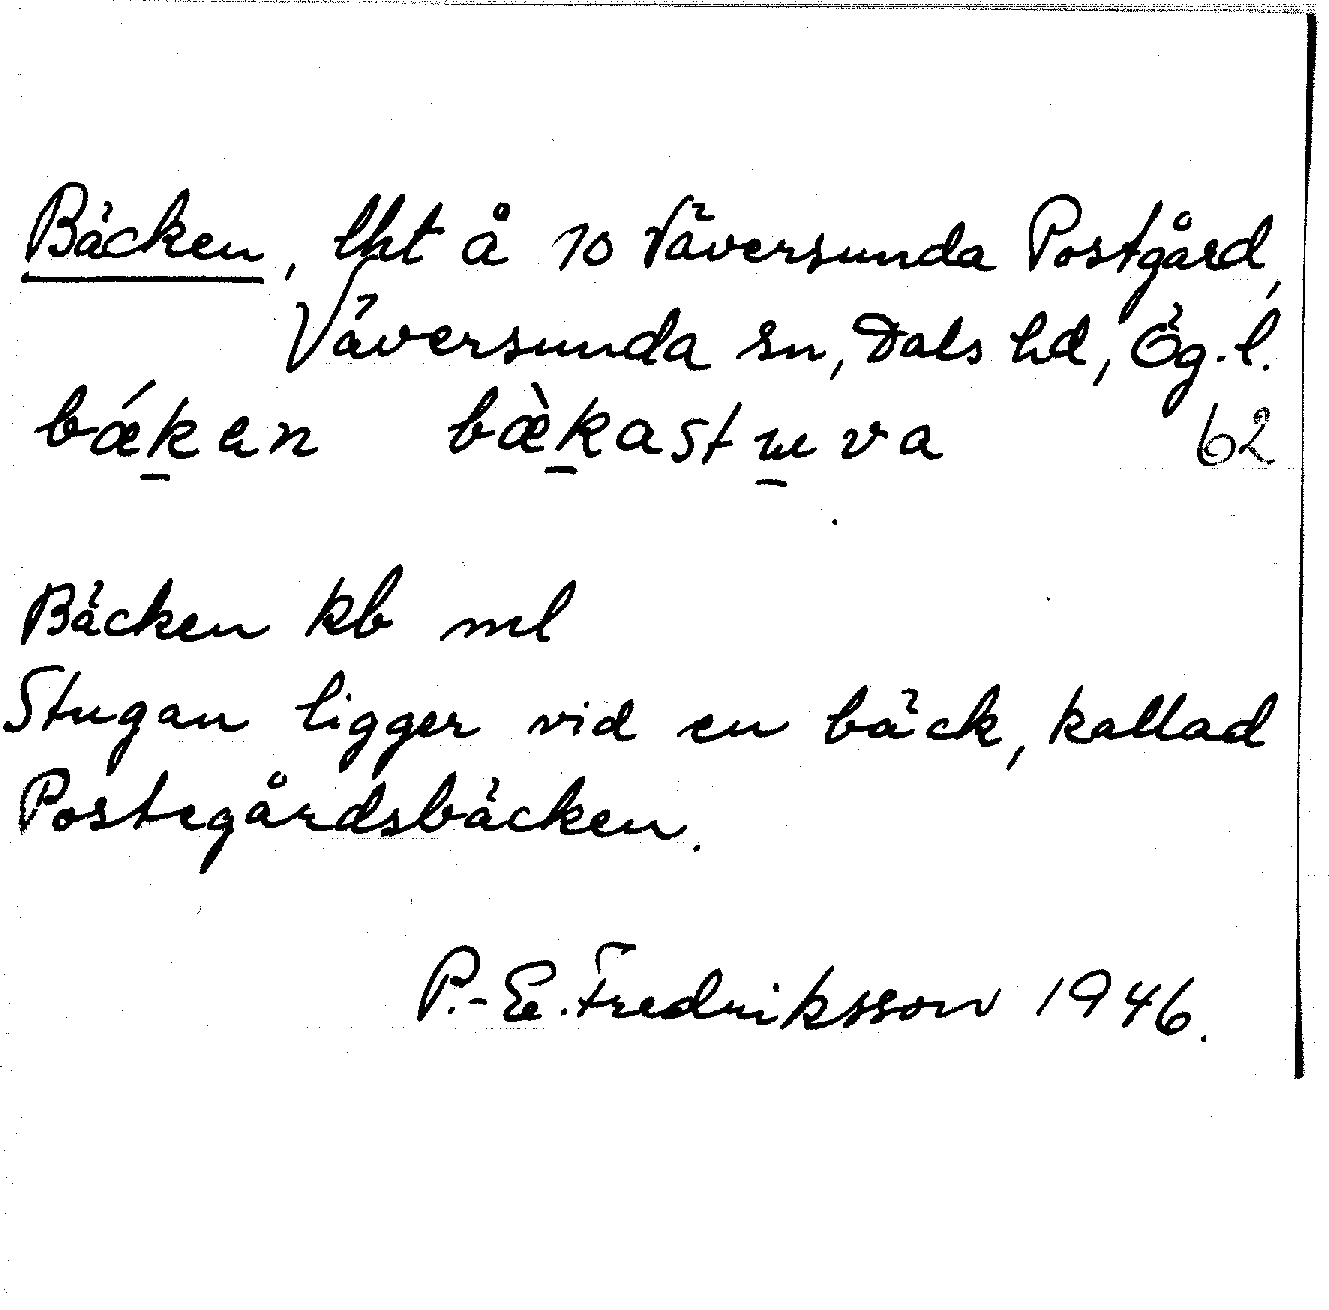 Bäcken, lht å 10 Väversunda Postgård,
Väversunda sn, Dals hd, Ög. l.
bǽk̠en bæ̀k̠ast̠uva 62
Bäcken kb ml
Stugan ligger vid en bäck, kallad
Postegårdsbäcken.
P.-E. Fredriksson 1946.